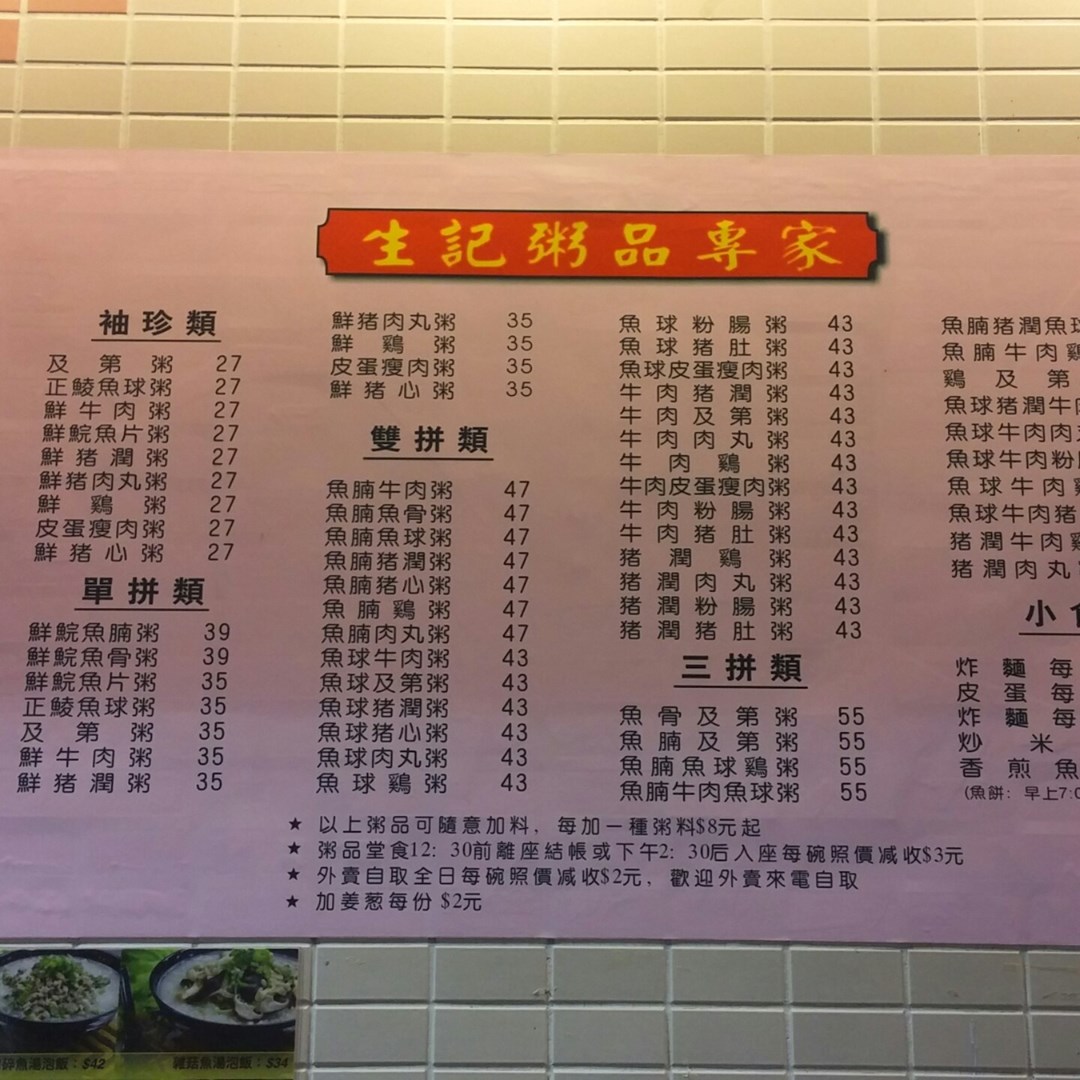 生記粥品專家
袖珍類
及第粥 27
正鯪魚球粥 27
鮮牛肉粥 27
鮮鯇魚片粥 27
鮮猪潤粥 27
鮮猪肉丸粥 27
鮮鷄粥 27
皮蛋瘦肉粥 27
鮮猪心粥 27
單拼類
鮮鯇魚腩粥 39
鮮鯇魚骨粥 39
鮮鯇魚片粥 35
正鯪魚球粥 35
及第粥 35
鮮牛肉粥 35
鮮猪潤粥 35
鮮猪肉丸粥 35
鮮鷄粥 35
皮蛋瘦肉粥 35
鮮猪心粥 35
雙拼類
魚腩牛肉粥 47
魚腩魚骨粥 47
魚腩魚球粥 47
魚腩猪潤粥 47
魚腩猪心粥 47
魚腩鷄粥 47
魚腩肉丸粥 47
魚球牛肉粥 43
魚球及第粥 43
魚球猪潤粥 43
魚球猪心粥 43
魚球肉丸粥 43
魚球鷄粥 43
魚球粉腸粥 43
魚球猪肚粥 43
魚球皮蛋瘦肉粥 43
牛肉猪潤粥 43
牛肉及第粥 43
牛肉肉丸粥 43
牛肉鷄粥 43
牛肉皮蛋瘦肉粥 43
牛肉粉腸粥 43
牛肉猪肚粥 43
猪潤鷄粥 43
猪潤肉丸粥 43
猪潤粉腸粥 43
猪潤猪肚粥 43
三拼類
魚骨及第粥 55
魚腩及第粥 55
魚腩魚球鷄粥 55
魚腩牛肉魚球粥 55
魚腩猪潤魚球
魚腩牛肉鷄
鷄及第
魚球猪潤牛肉
魚球牛肉肉丸
魚球牛肉粉
魚球牛肉鷄
魚球牛肉猪
猪潤牛肉鷄
猪潤肉丸
小食
炸麵每
皮蛋每
炸麵每
炒米
香煎魚
(魚餅: 早上7:0
★ 以上粥品可隨意加料, 每加一種粥料$8元起
★ 粥品堂食12: 30前離座結帳或下午2: 30后入座每碗照價减收$3元
★ 外賣自取全日每碗照價减收$2元, 歡迎外賣來電自取
★ 加姜葱每份 $2元
碎魚湯泡飯：$42
雜菇魚湯泡飯：$34